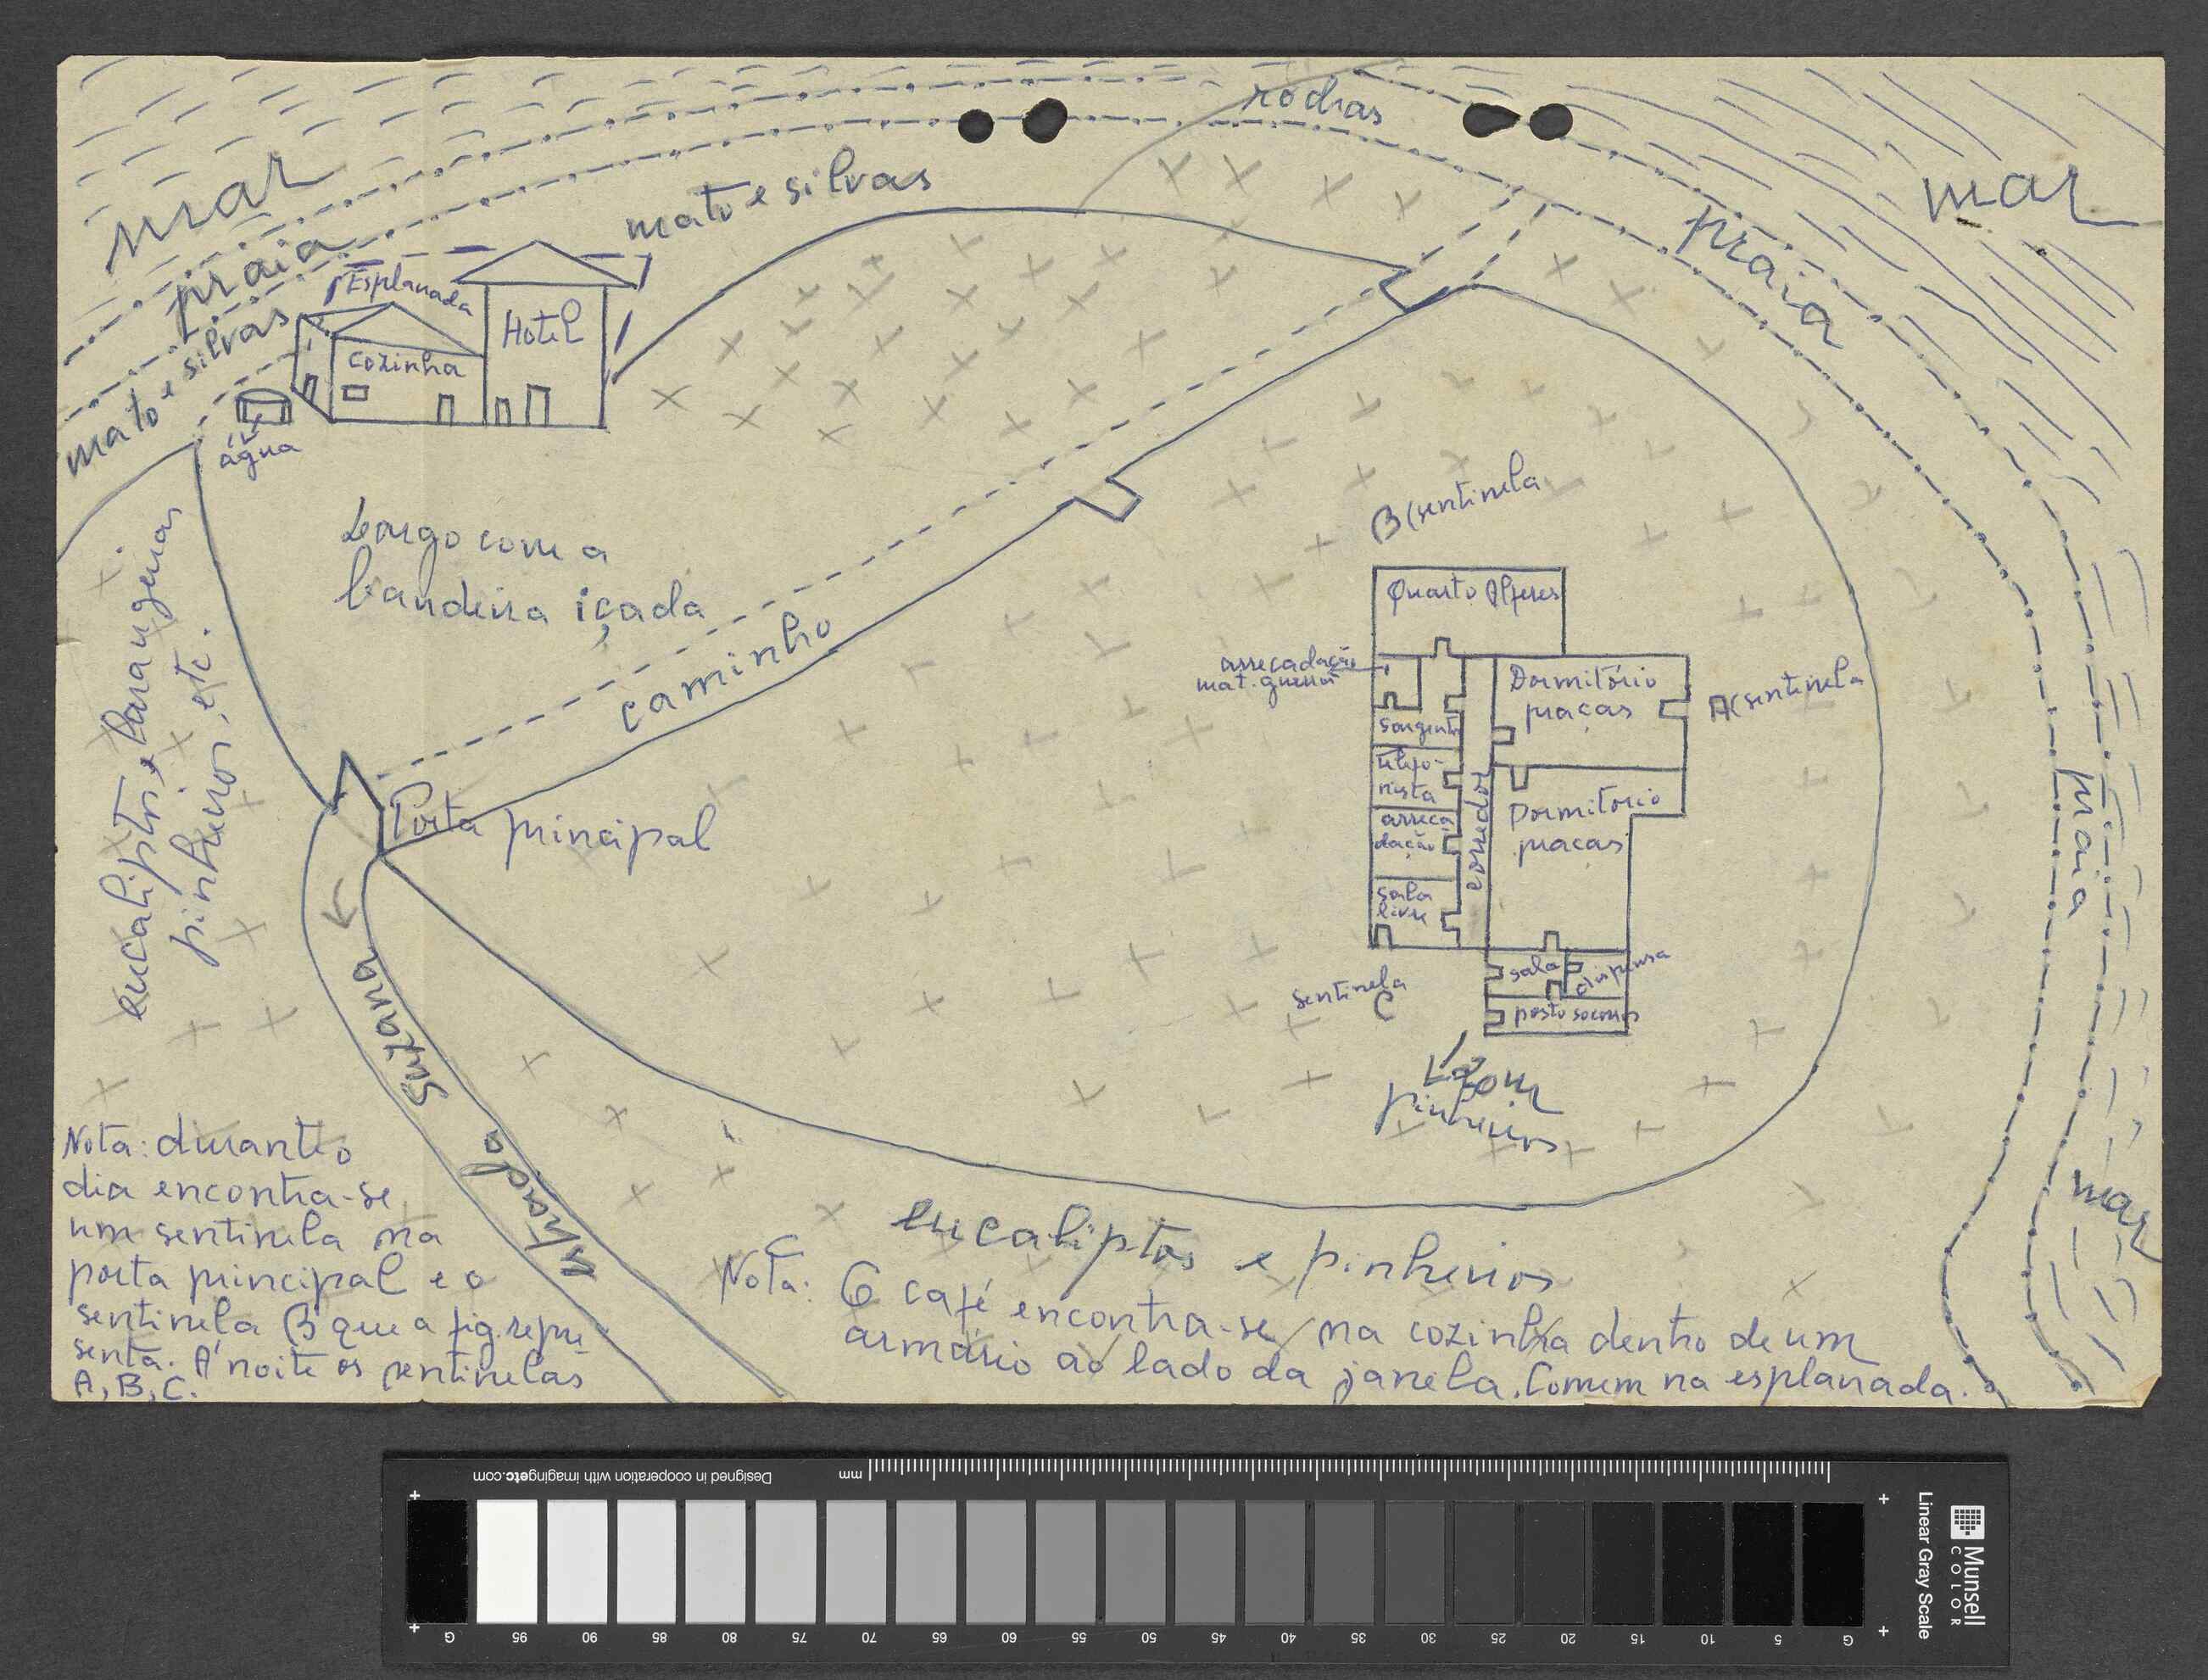 mar
praia
mato e silvas
Esplanada
Cozinha
Hotel
água
mato e silvas
rochas
praia
mar
Largo com a
bandeira içada
caminho
Porta principal
eucaliptos e larangeiras
pinheiros, etc.
B (sentinela
Quarto Alferes
arrecadação
mat. guerra
Dormitório
praças
A (sentinela
sargento
telefo-
nista
arreca
dação
sala
livre
corredor
Dormitorio
praças
sala
dispensa
posto socorros
sentinela
C
pinheiros
praia
mar
estrada
eucaliptos e pinheiros
Nota: durante o
dia encontra-se
um sentinela na
porta principal e o
sentinela B que a fig. repre
senta. A' noite os sentinelas
A, B, C.
Nota: O café encontra-se na cozinha dentro de um
armário ao lado da janela. Comem na esplanada.
Designed in cooperation with imagingetc.com
mm
G 95 90 85 80 75 70 65 60 55 50 45 40 35 30 25 20 15 10 5 G
Linear Gray Scale
Munsell
COLOR